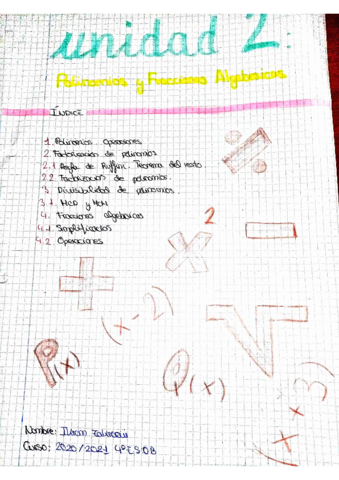 unidad 2:
Polinomios y Fracciones Algebraicas
ÍNDICE
1. Polinomios. Operaciones
2. Factorización de polinomios
2.1 Regla de Ruffini. Teorema del resto.
2.2. Factorización de polinomios.
3. Divisibilidad de polinomios.
3.1. MCD y MCM
4. Fracciones algebraicas
4.1. Simplificación
4.2. Operaciones
÷
x²
−
+
(x-2)
√
P(x)
Q(x)
(x+3)
Nombre:
Curso: 2020/2021 4ºESOB